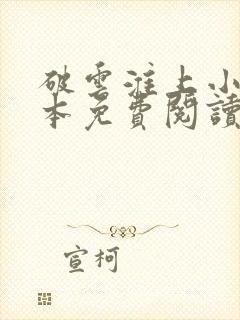 破雲淮上小
本免費閱讀
宣柯